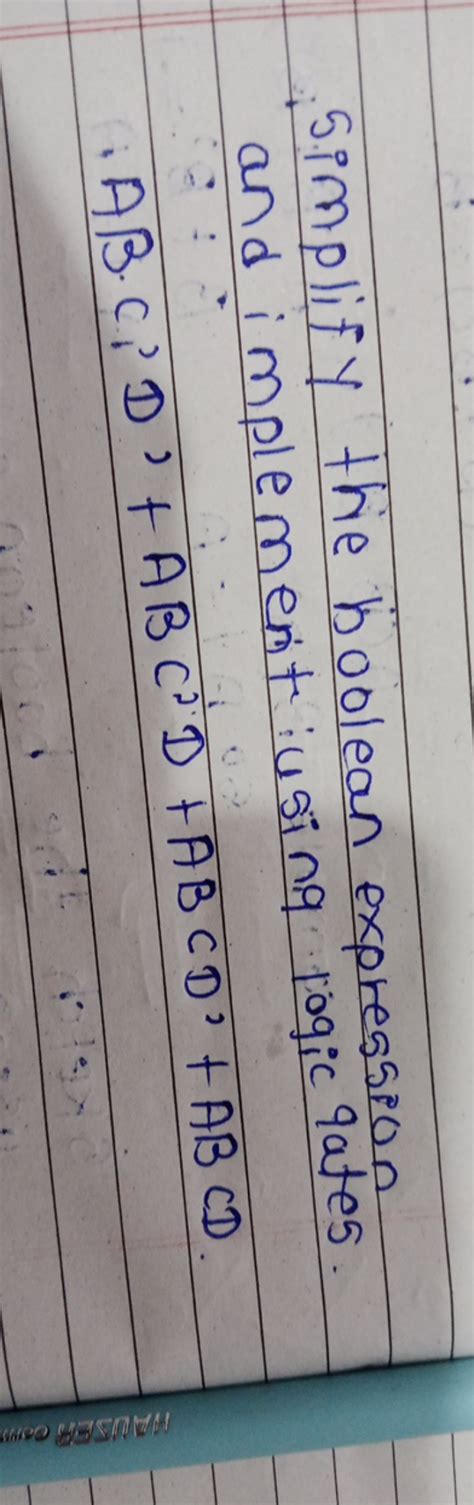 Simplify the boolean expression
and implement using logic gates.
ABC'D' + ABC'D + ABCD' + ABCD.
HAUSER